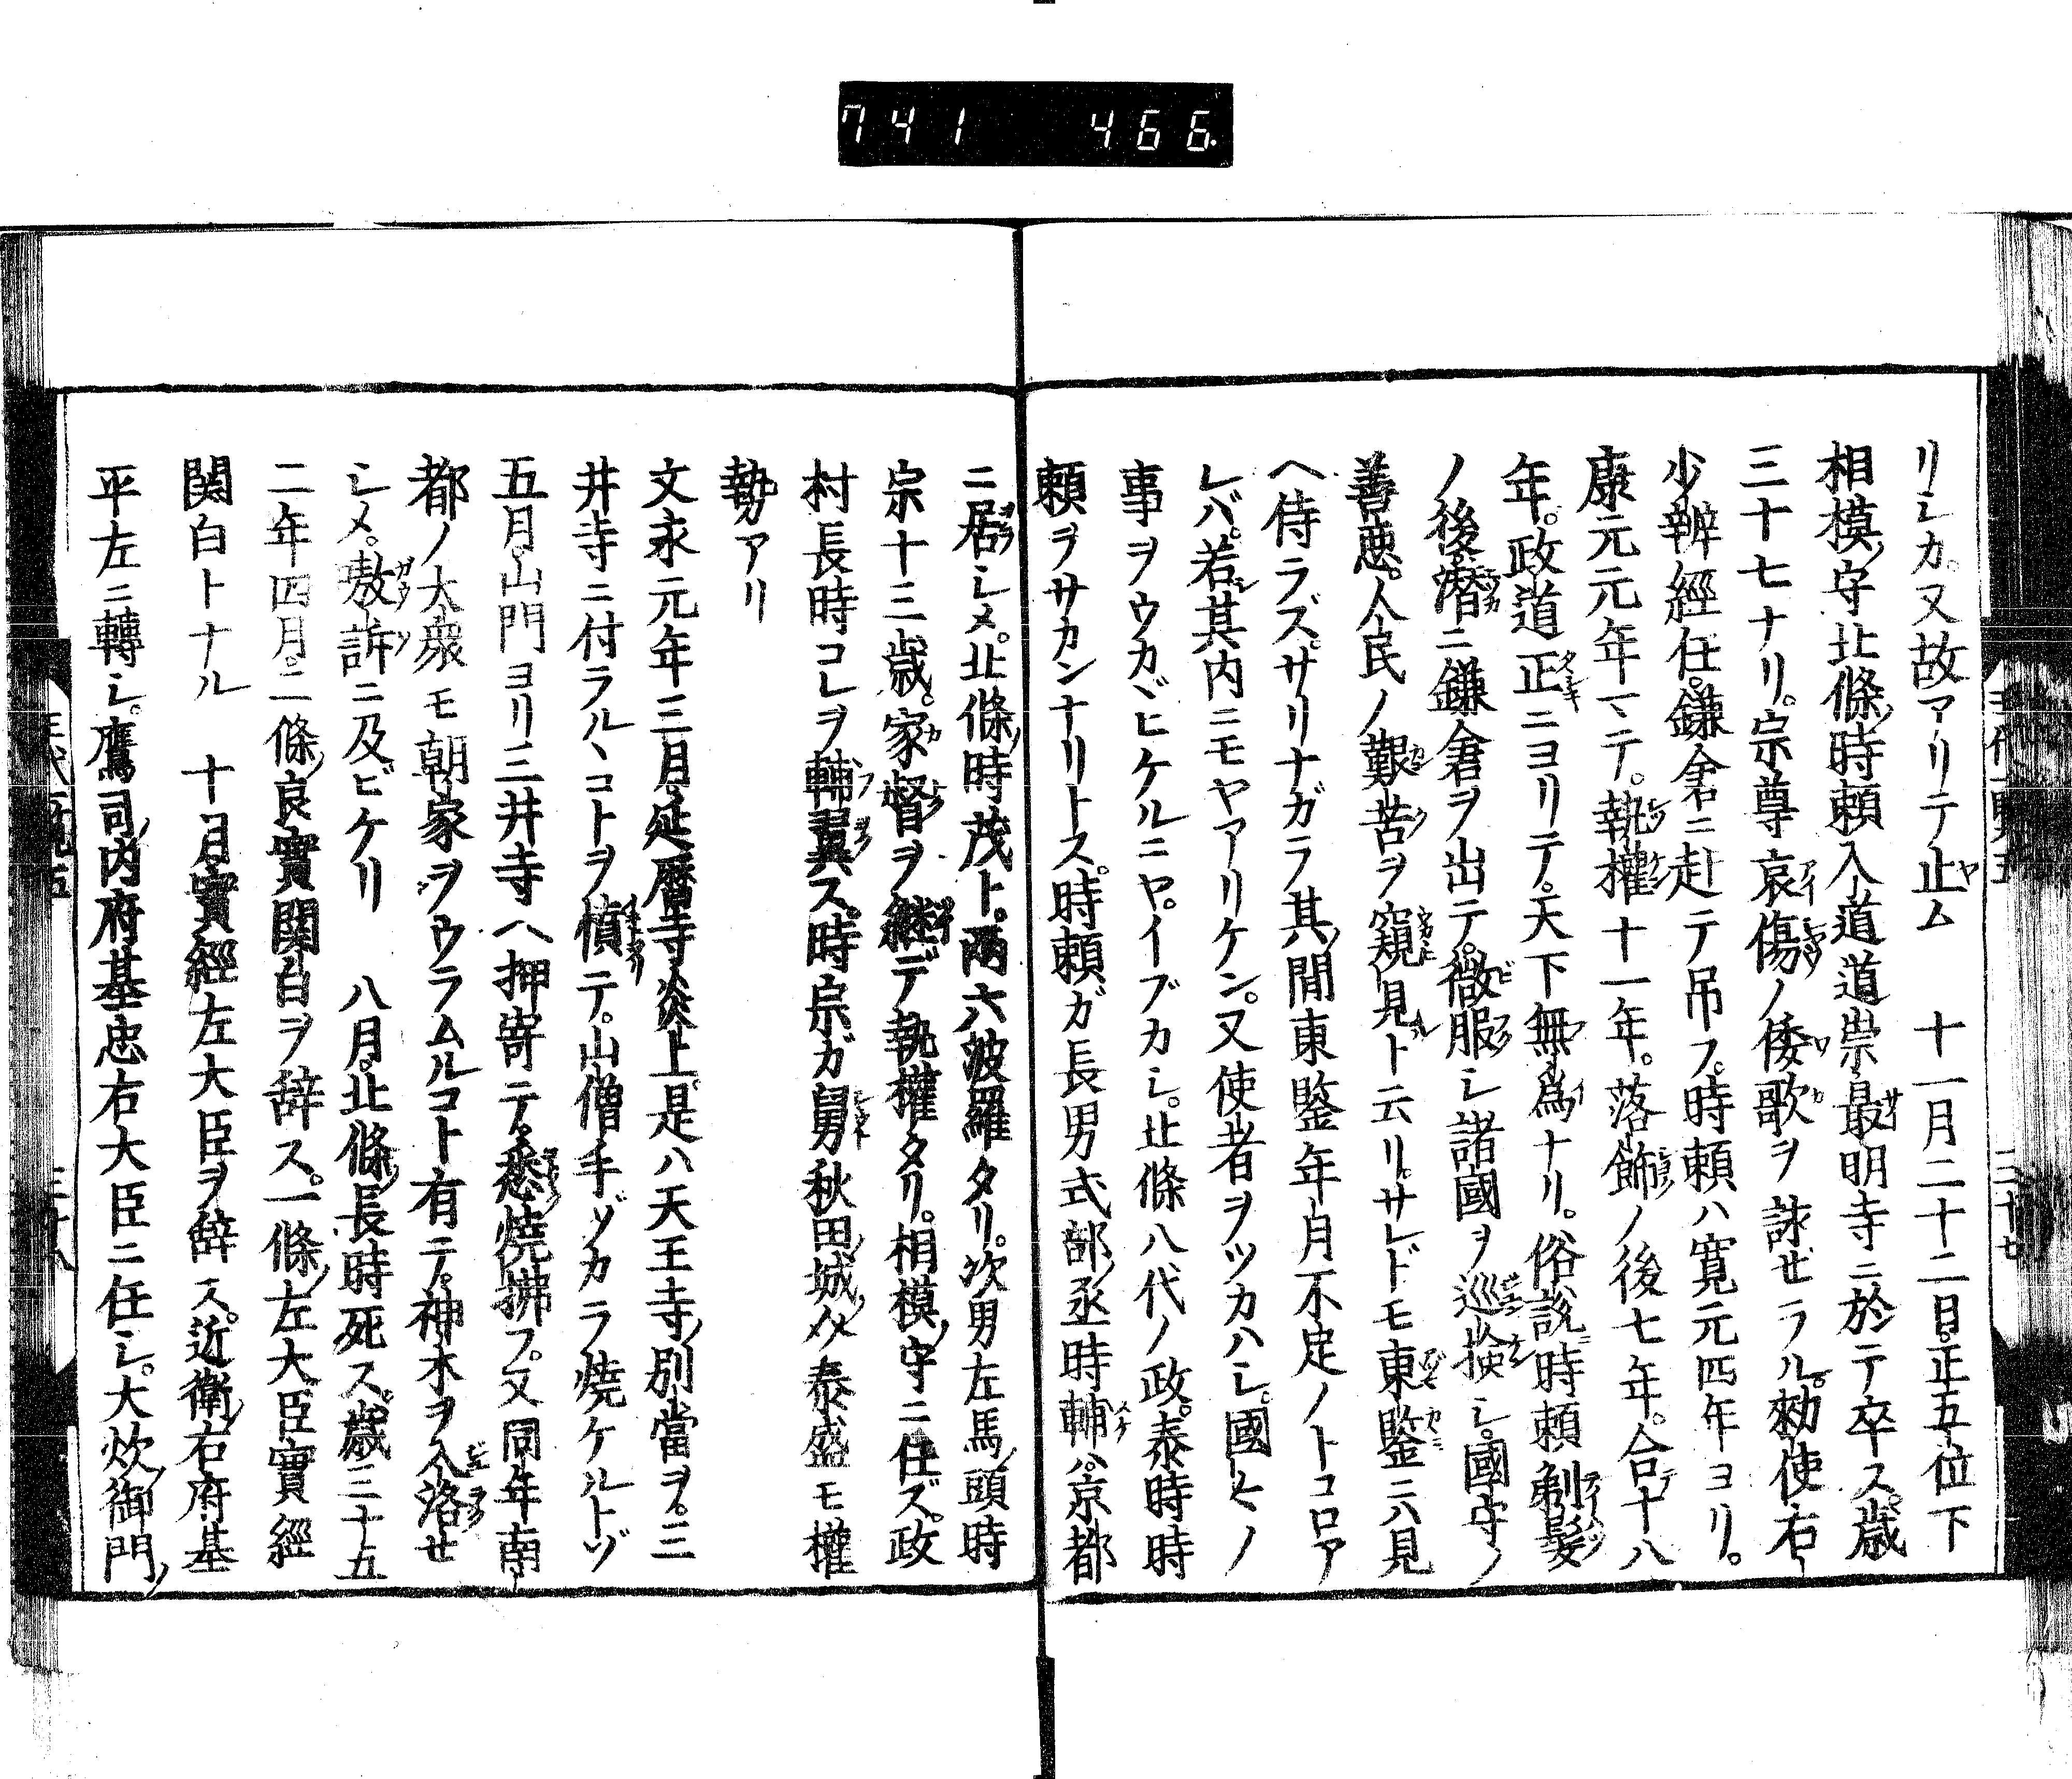 741 466
リシカ。又故アリテ止ム 十一月二十二日。正五位下
相模守北條時頼入道道崇最明寺ニ於テ卒ス。歳
三十七ナリ。宗尊哀傷ノ倭歌ヲ詠ゼラル。勅使右
少辨經任。鎌倉ニ赴テ吊フ。時頼ハ寛元四年ヨリ。
康元元年マテ。執權十一年。落飾ノ後七年。合十八
年。政道正ニヨリテ。天下無爲ナリ。俗説ニ時頼剃髪
ノ後。潜ニ鎌倉ヲ出テ。微服シ諸國ヲ巡撿シ。國守ノ
善悪。人民ノ艱苦ヲ窺見ト云リ。サレドモ東鑒ニハ見
ヘ侍ラズ。サリナガラ其間東鑒年月不足ノトコロア
レバ。若其内ニモヤアリケン。又使者ヲツカハシ。國々ノ
事ヲウカヾヒケルニヤ。イブカシ。北條八代ノ政。泰時時
頼ヲサカンナリトス。時頼ガ長男式部丞時輔ハ。京都
ニ居シメ。北條時茂ト。兩六波羅タリ。次男左馬頭時
宗十三歳。家督ヲ継デ執權タリ。相模守ニ任ズ。政
村長時コレヲ輔翼ス。時宗ガ舅秋田城介泰盛モ權
勢アリ
文永元年三月。延暦寺炎上。是ハ天王寺別當ヲ。三
井寺ニ付ラルヽコトヲ憤テ。山僧手ヅカラ燒ケルトゾ
五月。山門ヨリ三井寺ヘ押寄テ。悉燒拂フ。又同年南
都ノ大衆モ朝家ヲウラムルコト有テ。神木ヲ入洛セ
シメ。嗷訴ニ及ビケリ 八月。北條長時死ス。歳三十五
二年四月。二條良實關白ヲ辞ス。一條左大臣實經
関白トナル 十月實經左大臣ヲ辞ス。近衛右府基
平左ニ轉シ。鷹司内府基忠右大臣ニ任シ。大炊御門